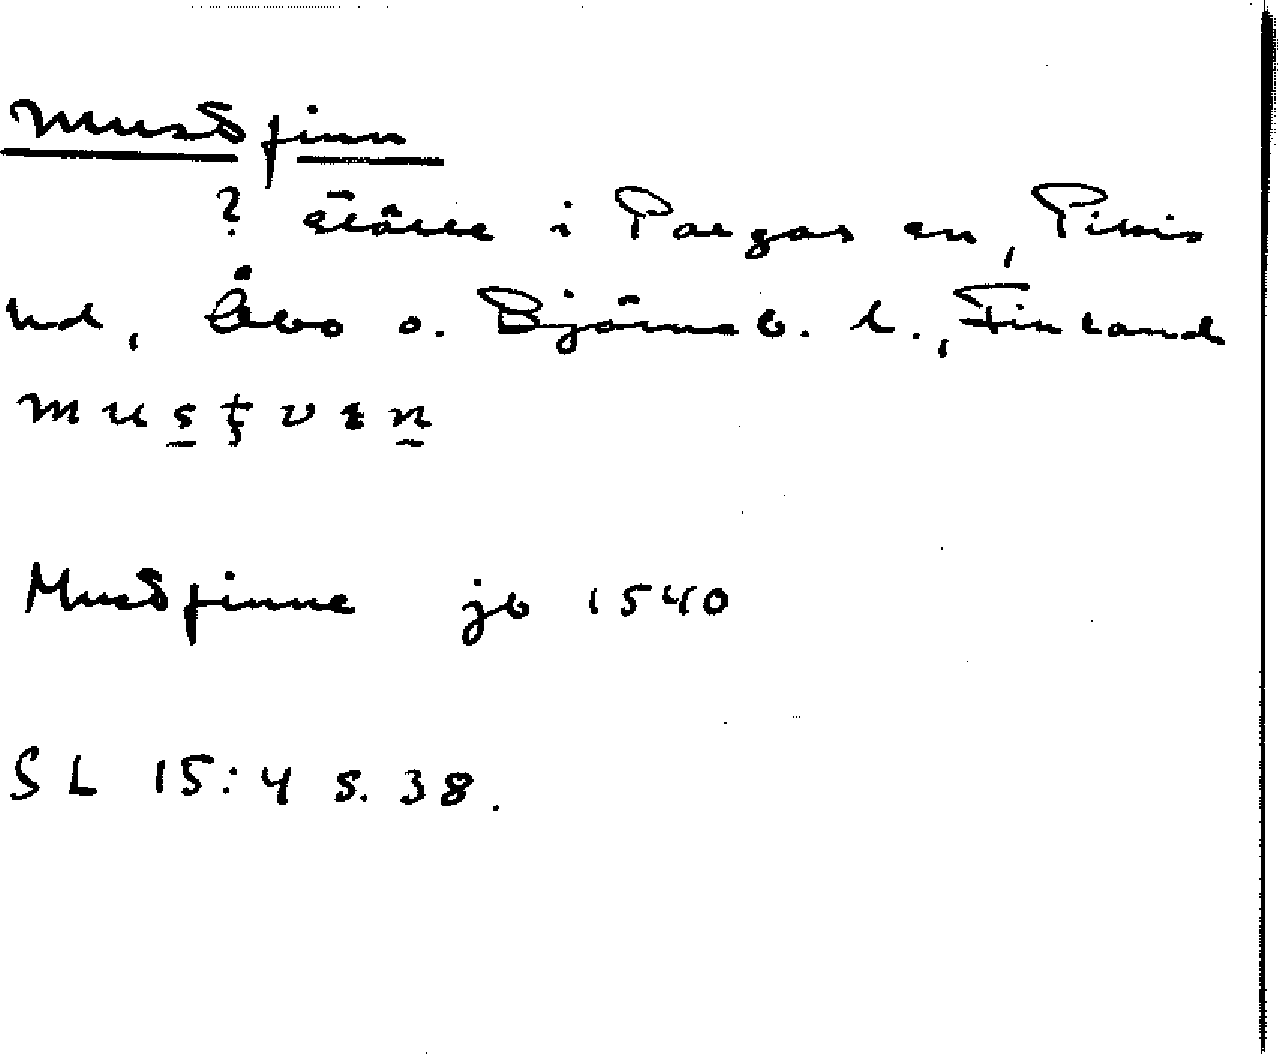 Mustfinn
? ställe i Pargas sn, Pikis
hd, Åbo o. Björneb. l., Finland
m u s t v ɪ n
Mustfinne jb 1540
SL 15:4 s. 38.